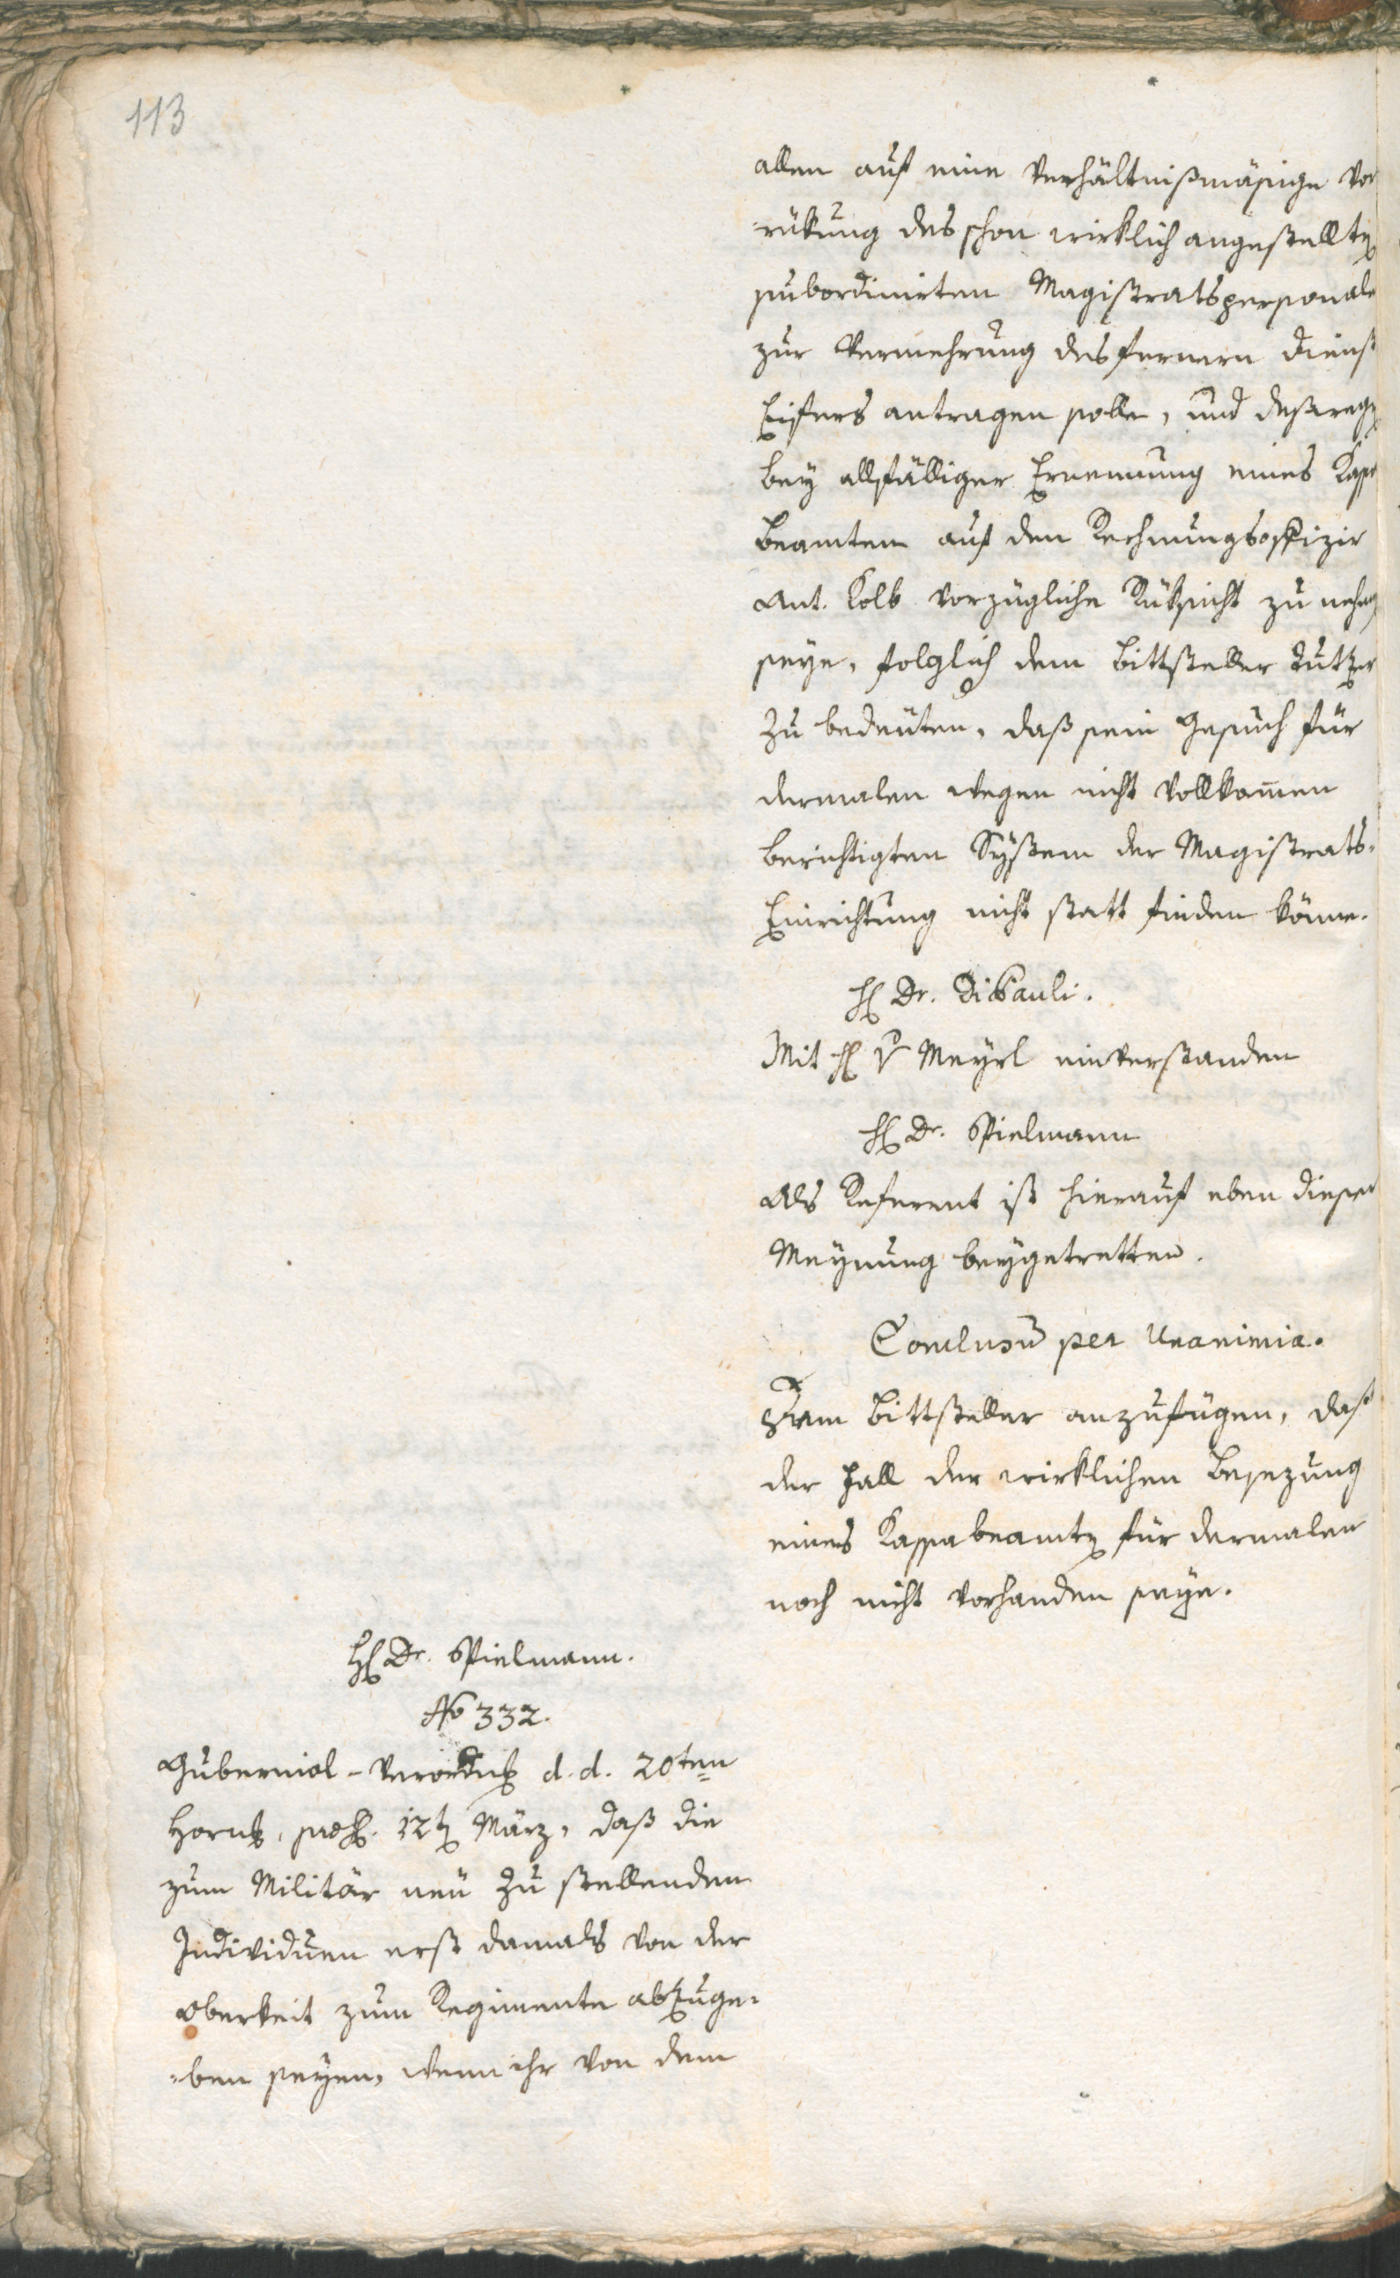 113
allen auf eine Verhältnißmäsige Vor
rükung des schon wirklich angestellten
subordinirten Magistratspersonale
zur Vermehrung des fernern Dienst
Eifers antragen solle, und deßwegen
bey allfälliger Ernennung eines Kasse
Beamten auf den Rechnungsoffizir
Ant. Kolb vorzügliche Rüksicht zu nehmen
seye, folglich dem Bittsteller
zu bedeuten, daß sein Gesuch für
dermalen wegen nicht vollkom̅en
berichtigten System der Magistrats-
Einrichtung nicht statt finden könne.
H Dr. DiPauli.
Mit H v Meyrl einverstanden
H Dr. Spielmann
Als Referent ist hierauf eben dieser
Meynung beygetretten.
Conclusum per Unanimia.
Dem Bittsteller anzufügen, daß
der Fall der wirklichen Besezung
eines Kassabeamten für dermalen
noch nicht vorhanden seye.
H Dr. Spielmann.
No 332.
Gubernial-Verordng d. d. 20ten
Hornung, 12ten März, daß die
zum Militär neu zu stellenden
Individuen erst damals von der
Oberkeit zum Regimente abzuge-
-ben seyen, wenn ihr von dem